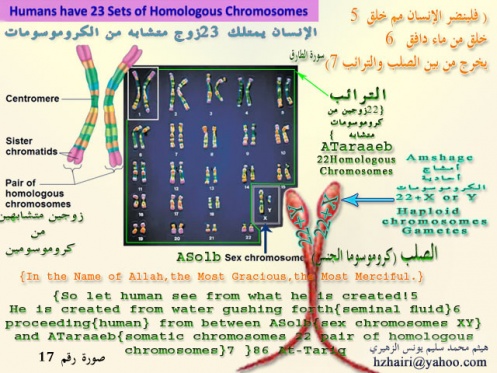 Humans have 23 Sets of Homologous Chromosomes
الإنسان يمتلك 23زوج متشابه من الكروموسومات
( فلينضر الإنسان مم خلق 5
خلق من ماء دافق 6
يخرج من بين الصلب والترائب 7)
سورة الطارق
Centromere
Sister
chromatids
Pair of
homologous
chromosomes
زوجين متشابهين
من
كروموسومين
الترائب
{22زوجين من
كروموسومات
متشابه }
ATaraaeb
22Homologous
Chromosomes
Amshage
أمشاج
أحادية
الكروموسومات
22+X or Y
Haploid
chromosomes
Gametes
22+X
22+Y
ASolb Sex chromosome
الصلب (كروموسوما الجنس)
{In the Name of Allah,the Most Gracious,the Most Merciful.}
{So let human see from what he is created!5
He is created from water gushing forth{seminal fluid}6
proceeding{human} from between ASolb{sex chromosomes XY}
and ATaraaeb{somatic chromosomes 22 pair of homologous
chromosomes}7 }86 At-Tariq
صورة رقم 17
هيثم محمد سليم يونس الزهيري
hzhairi@yahoo.com